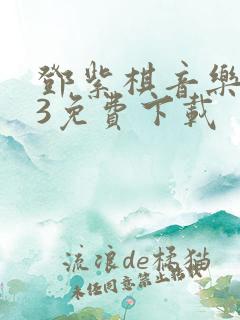 鄧紫棋音樂
3免費下載
流浪de橘猫
未经同意禁止转载